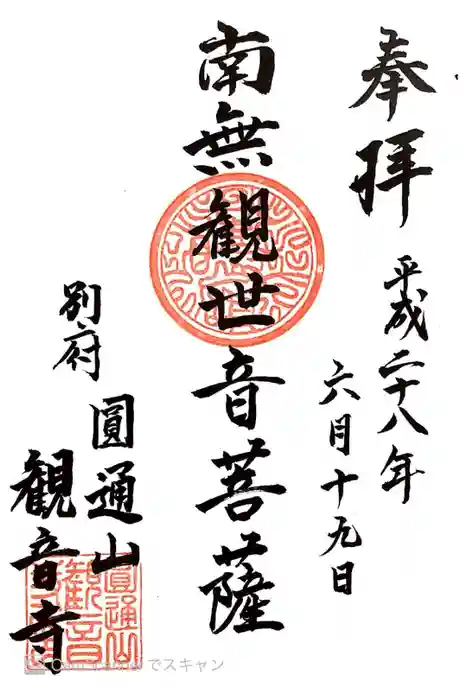 奉拝
平成二十八年
六月十九日
南無観世音菩薩
別府
圓通山
観音寺
圓通山
観音
でスキャン